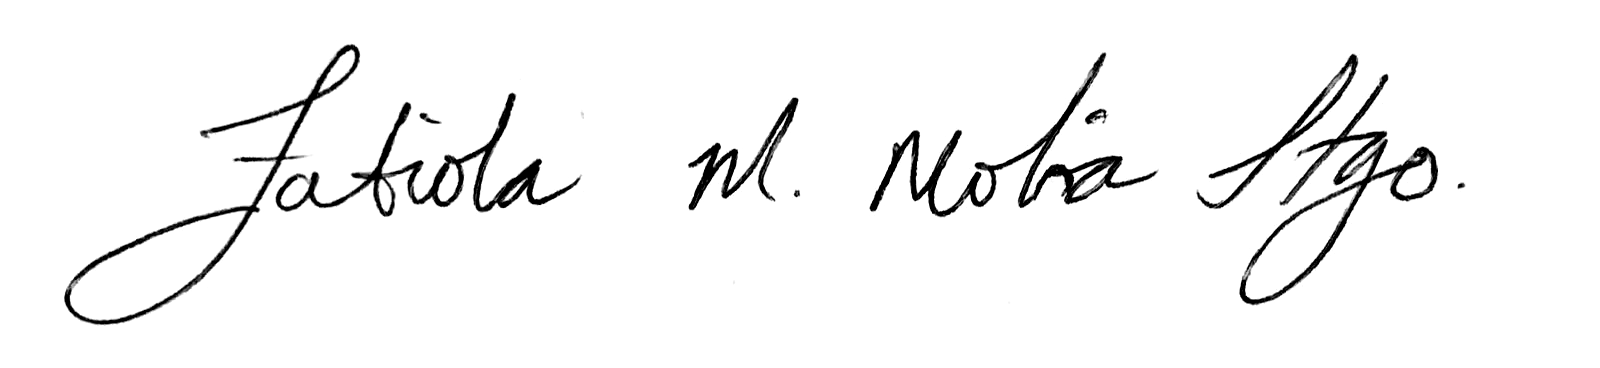 Fabiola M. Molina Stgo.